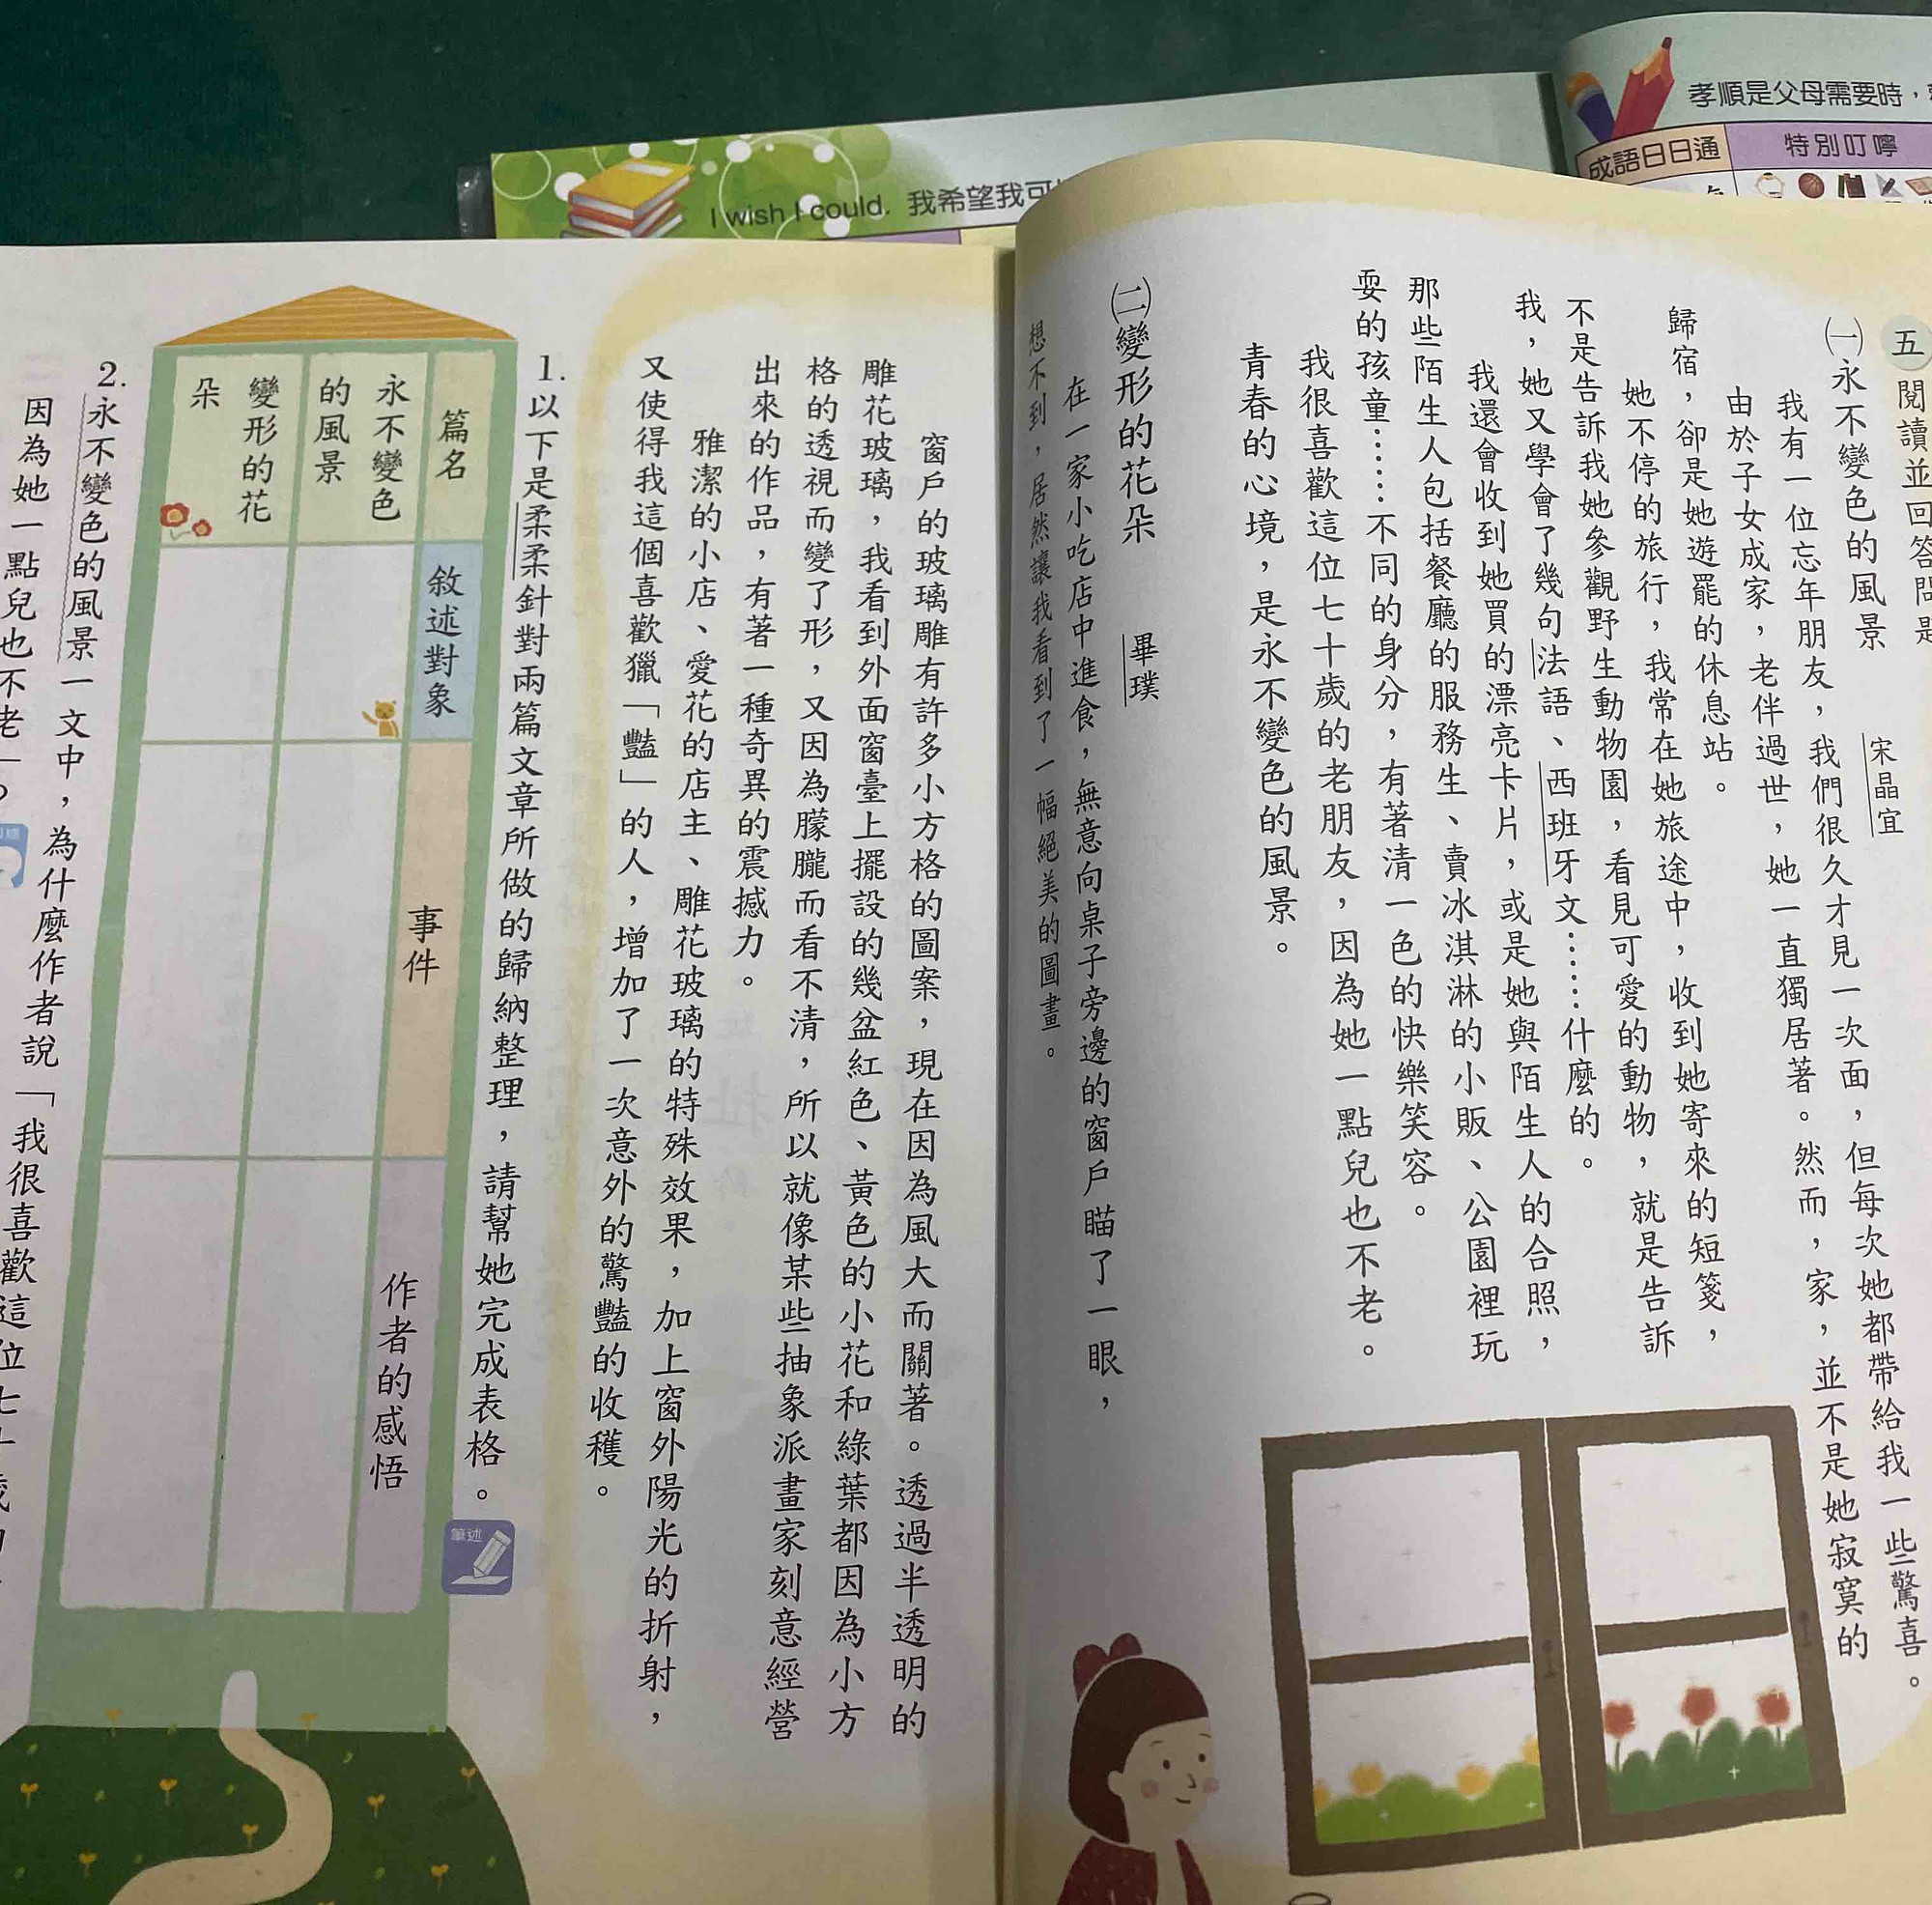 孝順是父母需要時，
成語日日通
特別叮嚀
I wish I could. 我希望我可
五 閱讀並回答問
㈠永不變色的風景 宋晶宜
我有一位忘年朋友，我們很久才見一次面，但每次她都帶給我一些驚喜。
由於子女成家，老伴過世，她一直獨居著。然而，家，並不是她寂寞的
歸宿，卻是她遊罷的休息站。
她不停的旅行，我常在她旅途中，收到她寄來的短箋，
不是告訴我她參觀野生動物園，看見可愛的動物，就是告訴
我，她又學會了幾句法語、西班牙文……什麼的。
我還會收到她買的漂亮卡片，或是她與陌生人的合照，
那些陌生人包括餐廳的服務生、賣冰淇淋的小販、公園裡玩
耍的孩童……不同的身分，有著清一色的快樂笑容。
我很喜歡這位七十歲的老朋友，因為她一點兒也不老。
青春的心境，是永不變色的風景。
㈡變形的花朵 畢璞
在一家小吃店中進食，無意向桌子旁邊的窗戶瞄了一眼，
想不到，居然讓我看到了一幅絕美的圖畫。
窗戶的玻璃雕有許多小方格的圖案，現在因為風大而關著。透過半透明的
雕花玻璃，我看到外面窗臺上擺設的幾盆紅色、黃色的小花和綠葉都因為小方
格的透視而變了形，又因為朦朧而看不清，所以就像某些抽象派畫家刻意經營
出來的作品，有著一種奇異的震撼力。
雅潔的小店、愛花的店主、雕花玻璃的特殊效果，加上窗外陽光的折射，
又使得我這個喜歡獵「豔」的人，增加了一次意外的驚豔的收穫。
1.以下是柔柔針對兩篇文章所做的歸納整理，請幫她完成表格。
筆述
篇名
敘述對象
事件
作者的感悟
永不變色
的風景
變形的花
朵
2.永不變色的風景一文中，為什麼作者說「我很喜歡這位七十
因為她一點兒也不老」？